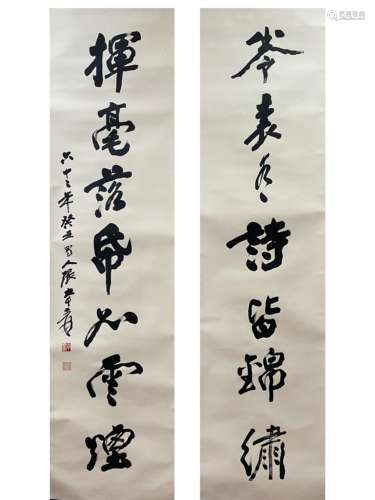 詩皆錦繡
揮毫落帋如雲煙
六十二年癸丑蜀人張大千爰